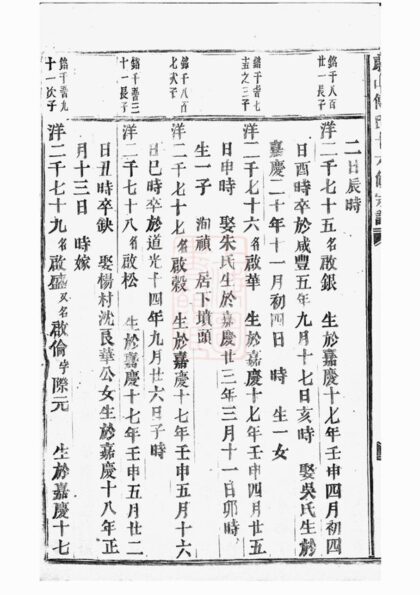 二日辰時
銘千八百
廿一長子
洋二千七十五名啟銀 生於嘉慶十七年壬申四月初四
日酉時卒於咸豐五年九月十七日亥時 娶吳氏生於
嘉慶二十年十一月初四日 時 生一女
之三子
洋二千七十六名啟華 生於嘉慶十七年壬申四月廿五
日申時 娶朱氏生於嘉慶廿三年三月十一日卯時
生一子 洵禎 居下墳頭
銘千八百
七次子
洋二千七十七名啟穀 生於嘉慶十七年壬申五月十六
日巳時卒於道光十四年九月廿六日子時
十一長子
洋二千七十八名啟松 生於嘉慶十七年壬申五月廿二
日丑時卒缺 娶楊村沈艮華公女生於嘉慶十八年正
月十三日 時嫁
十一次子
洋二千七十九名啟盛又名啟倫字際元 生於嘉慶十七